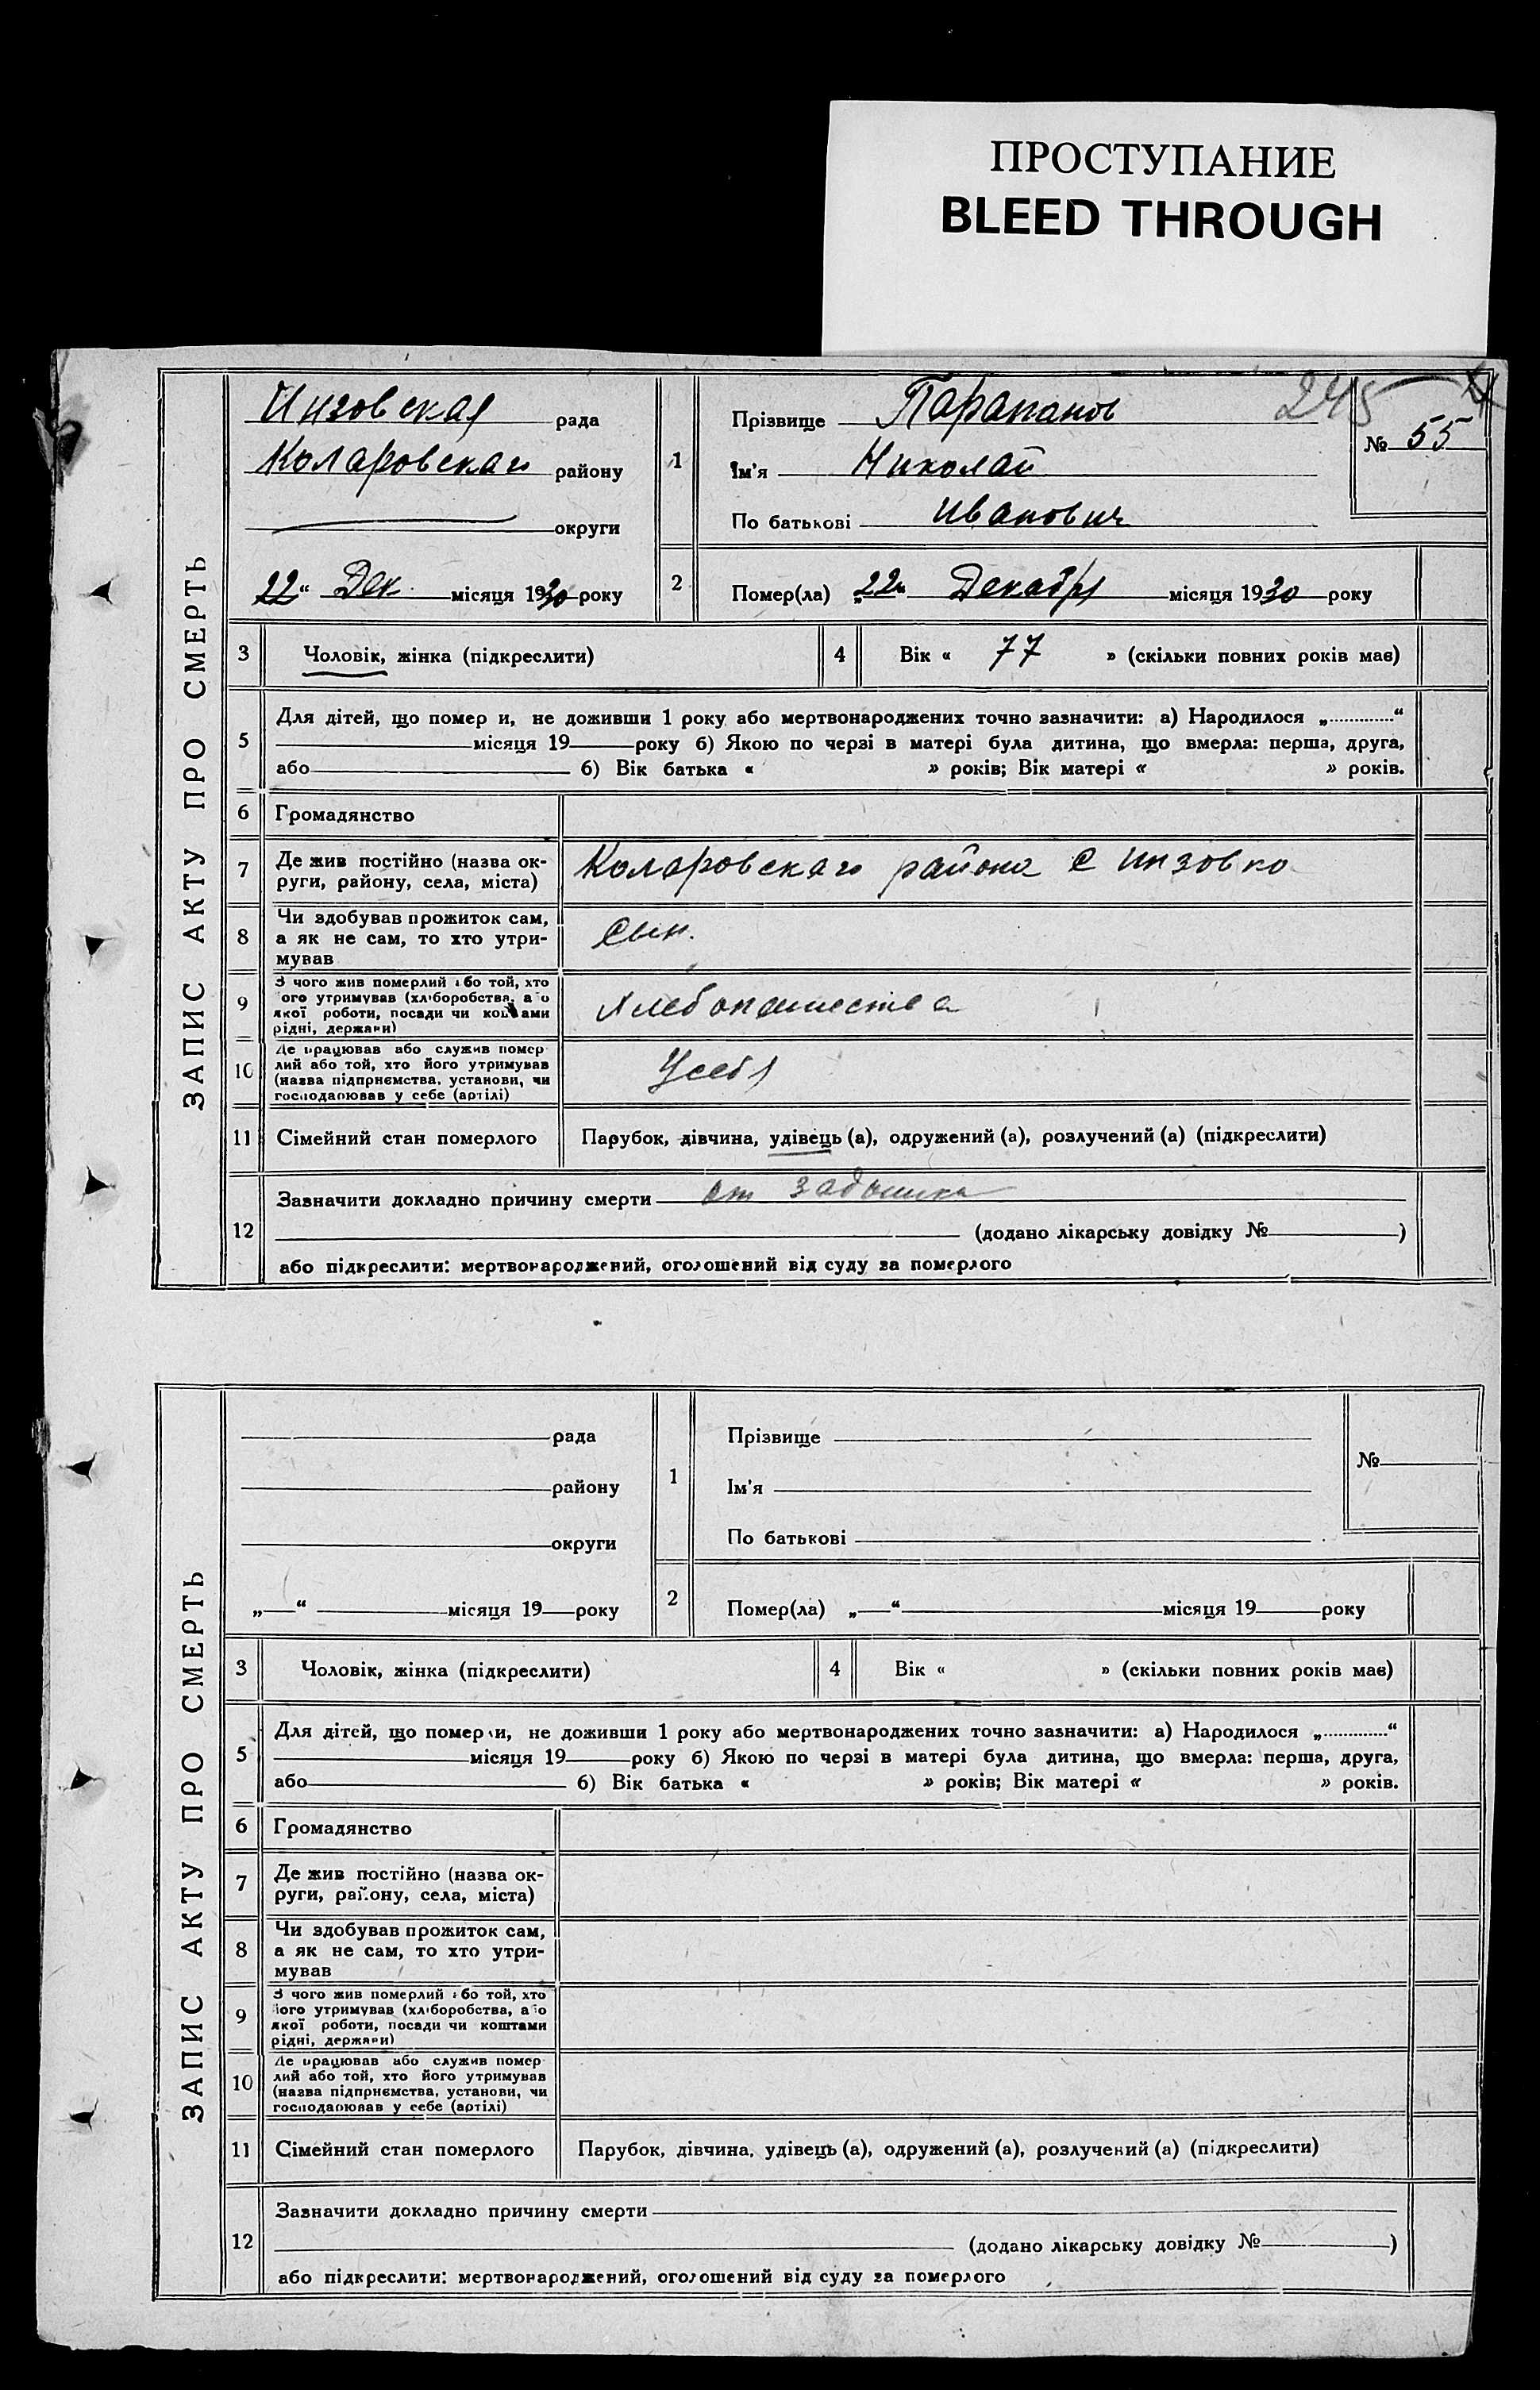 ПРОСТУПАНИЕ
BLEED THROUGH
245
ЗАПИС АКТУ ПРО СМЕРТЬ
Инзовская рада
Коларовскаго району
округи
22 “ Дек. місяця 1930 року
1
Прізвище Парапанов
Ім'я Николай
По батькові Иванович
№ 55
2
Помер(ла) „22“ Декабря місяця 1930 року
3
Чоловік, жінка (підкреслити)
4
Вік « 77 » (скільки повних років має)
5
Для дітей, що помер и, не доживши 1 року або мертвонароджених точно зазначити: а) Народилося „ “
місяця 19 року б) Якою по черзі в матері була дитина, що вмерла: перша, друга,
або б) Вік батька « » років; Вік матері « » років.
6
Громадянство
7
Де жив постійно (назва ок-
руги, району, села, міста)
Коларовскаго района с Инзовка
8
Чи здобував прожиток сам,
а як не сам, то хто утри-
мував
Сын.
9
З чого жив померлий або той, хто
його утримував (хліборобства, або
якої роботи, посади чи коштами
рідні, держави)
Хлебопашества
10
Де працював або служив помер
лий або той, хто його утримував
(назва підпрнємства, установи, чи
господарював у себе (артілі)
У себя
11
Сімейний стан померлого
Парубок, дівчина, удівець (а), одружений (а), розлучений (а) (підкреслити)
12
Зазначити докладно причину смерти от задышка
(додано лікарську довідку № )
або підкреслити: мертвонароджений, оголошений від суду за померлого
ЗАПИС АКТУ ПРО СМЕРТЬ
рада
району
округи
„ “ місяця 19 року
1
Прізвище
Ім'я
По батькові
№
2
Помер(ла) „ “ місяця 19 року
3
Чоловік, жінка (підкреслити)
4
Вік « » (скільки повних років має)
5
Для дітей, що померли, не доживши 1 року або мертвонароджених точно зазначити: а) Народилося „ “
місяця 19 року б) Якою по черзі в матері була дитина, що вмерла: перша, друга,
або б) Вік батька « » років; Вік матері « » років.
6
Громадянство
7
Де жив постійно (назва ок-
руги, району, села, міста)
8
Чи здобував прожиток сам,
а як не сам, то хто утри-
мував
9
З чого жив померлий або той, хто
його утримував (хліборобства, або
якої роботи, посади чи коштами
рідні, держави)
10
Де працював або служив помер
лий або той, хто його утримував
(назва підпрнємства, установи, чи
господарював у себе (артілі)
11
Сімейний стан померлого
Парубок, дівчина, удівець (а), одружений (а), розлучений (а) (підкреслити)
12
Зазначити докладно причину смерти
(додано лікарську довідку № )
або підкреслити: мертвонароджений, оголошений від суду за померлого